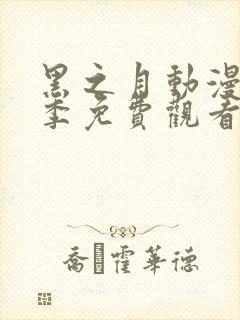 黑之月動漫
季免費觀看
喬·霍華德